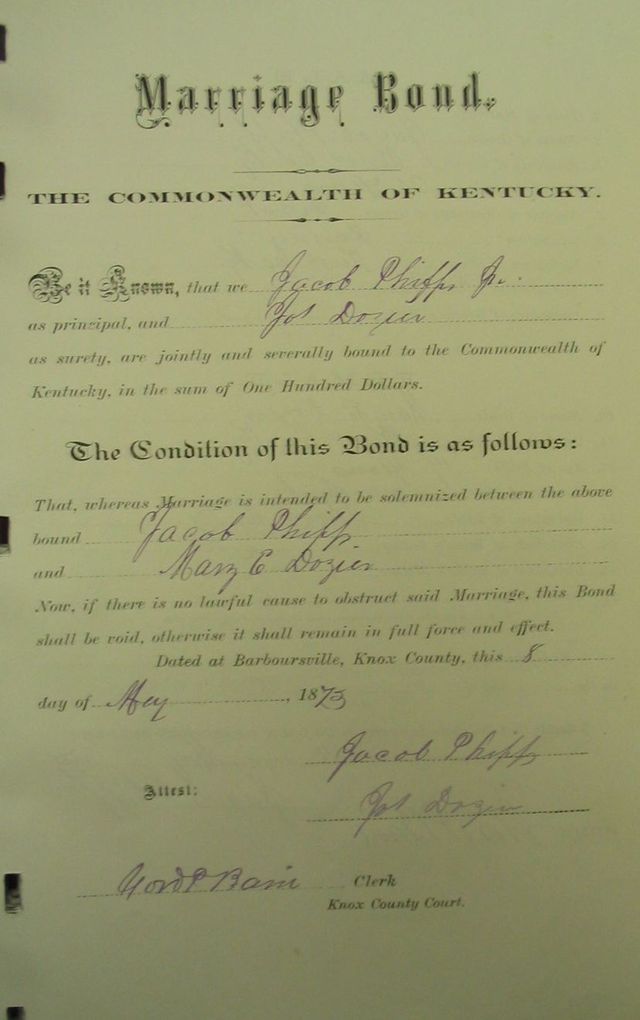 Marriage Bond.
THE COMMONWEALTH OF KENTUCKY.
Be it Known, that we Jacob Phipps Jr.
as principal, and Dozier
as surety, are jointly and severally bound to the Commonwealth of
Kentucky, in the sum of One Hundred Dollars.
The Condition of this Bond is as follows:
That, whereas Marriage is intended to be solemnized between the above
bound Jacob Phipps
and Mary E Dozier
Now, if there is no lawful cause to obstruct said Marriage, this Bond
shall be void, otherwise it shall remain in full force and effect.
Dated at Barboursville, Knox County, this 8
day of May, 1873
Jacob Phipps
Attest:
Dozier
Clerk
Knox County Court.